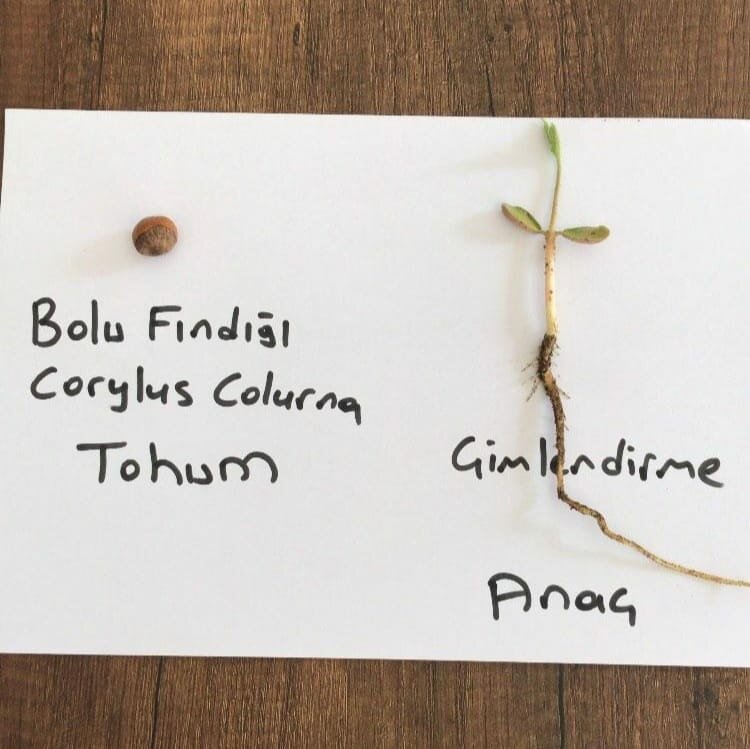 Bolu Fındığı
Corylus Colurna
Tohum
Çimlendirme
Anaç